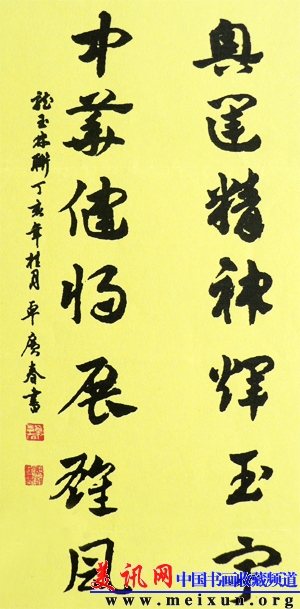 奥運精神輝玉宇
中華健将展雄風
龍玉林聯丁亥年桂月 廣春書
美讯网 中国书画收藏频道
www.meixun.org